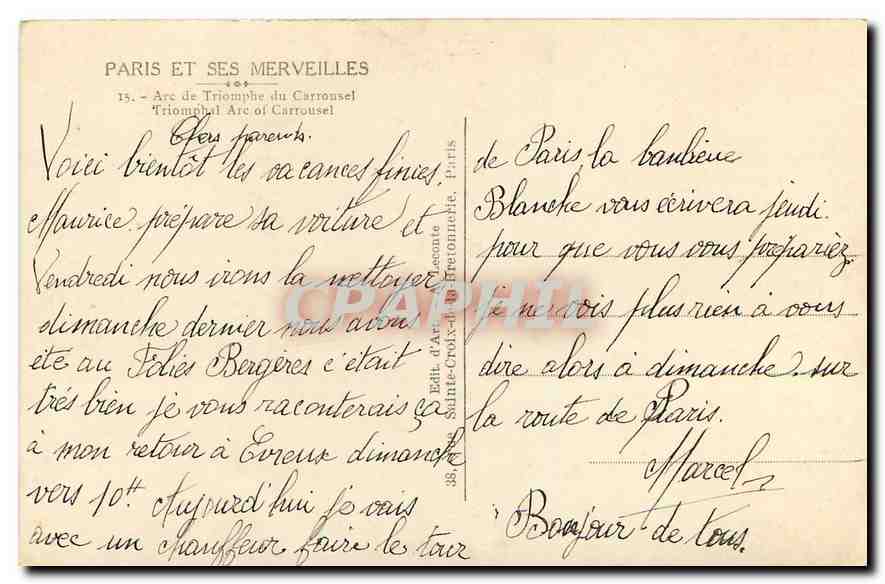 PARIS ET SES MERVEILLES
15. - Arc de Triomphe du Carrousel
Triomphal Arc of Carrousel
Chers parents.
Voici bientôt les vacances finies,
Maurice prépare sa voiture et
Vendredi nous irons la nettoyer,
dimanche dernier nous avons
été au Folies Bergères c'était
très bien je vous raconterais ça
à mon retour à Evreux dimanche
vers 10H Aujourd'hui je vais
avec un chauffeur faire le tour
de Paris, la banlieue
Blanche vous écrivera jeudi.
pour que vous vous prépariez,
je ne vois plus rien à vous
dire alors à dimanche sur
la route de Paris.
Marcel
Bonjour de tous.
Edit. d'Art Leconte
38, Sainte-Croix-de-la-Bretonnerie, Paris
CPAPHIL